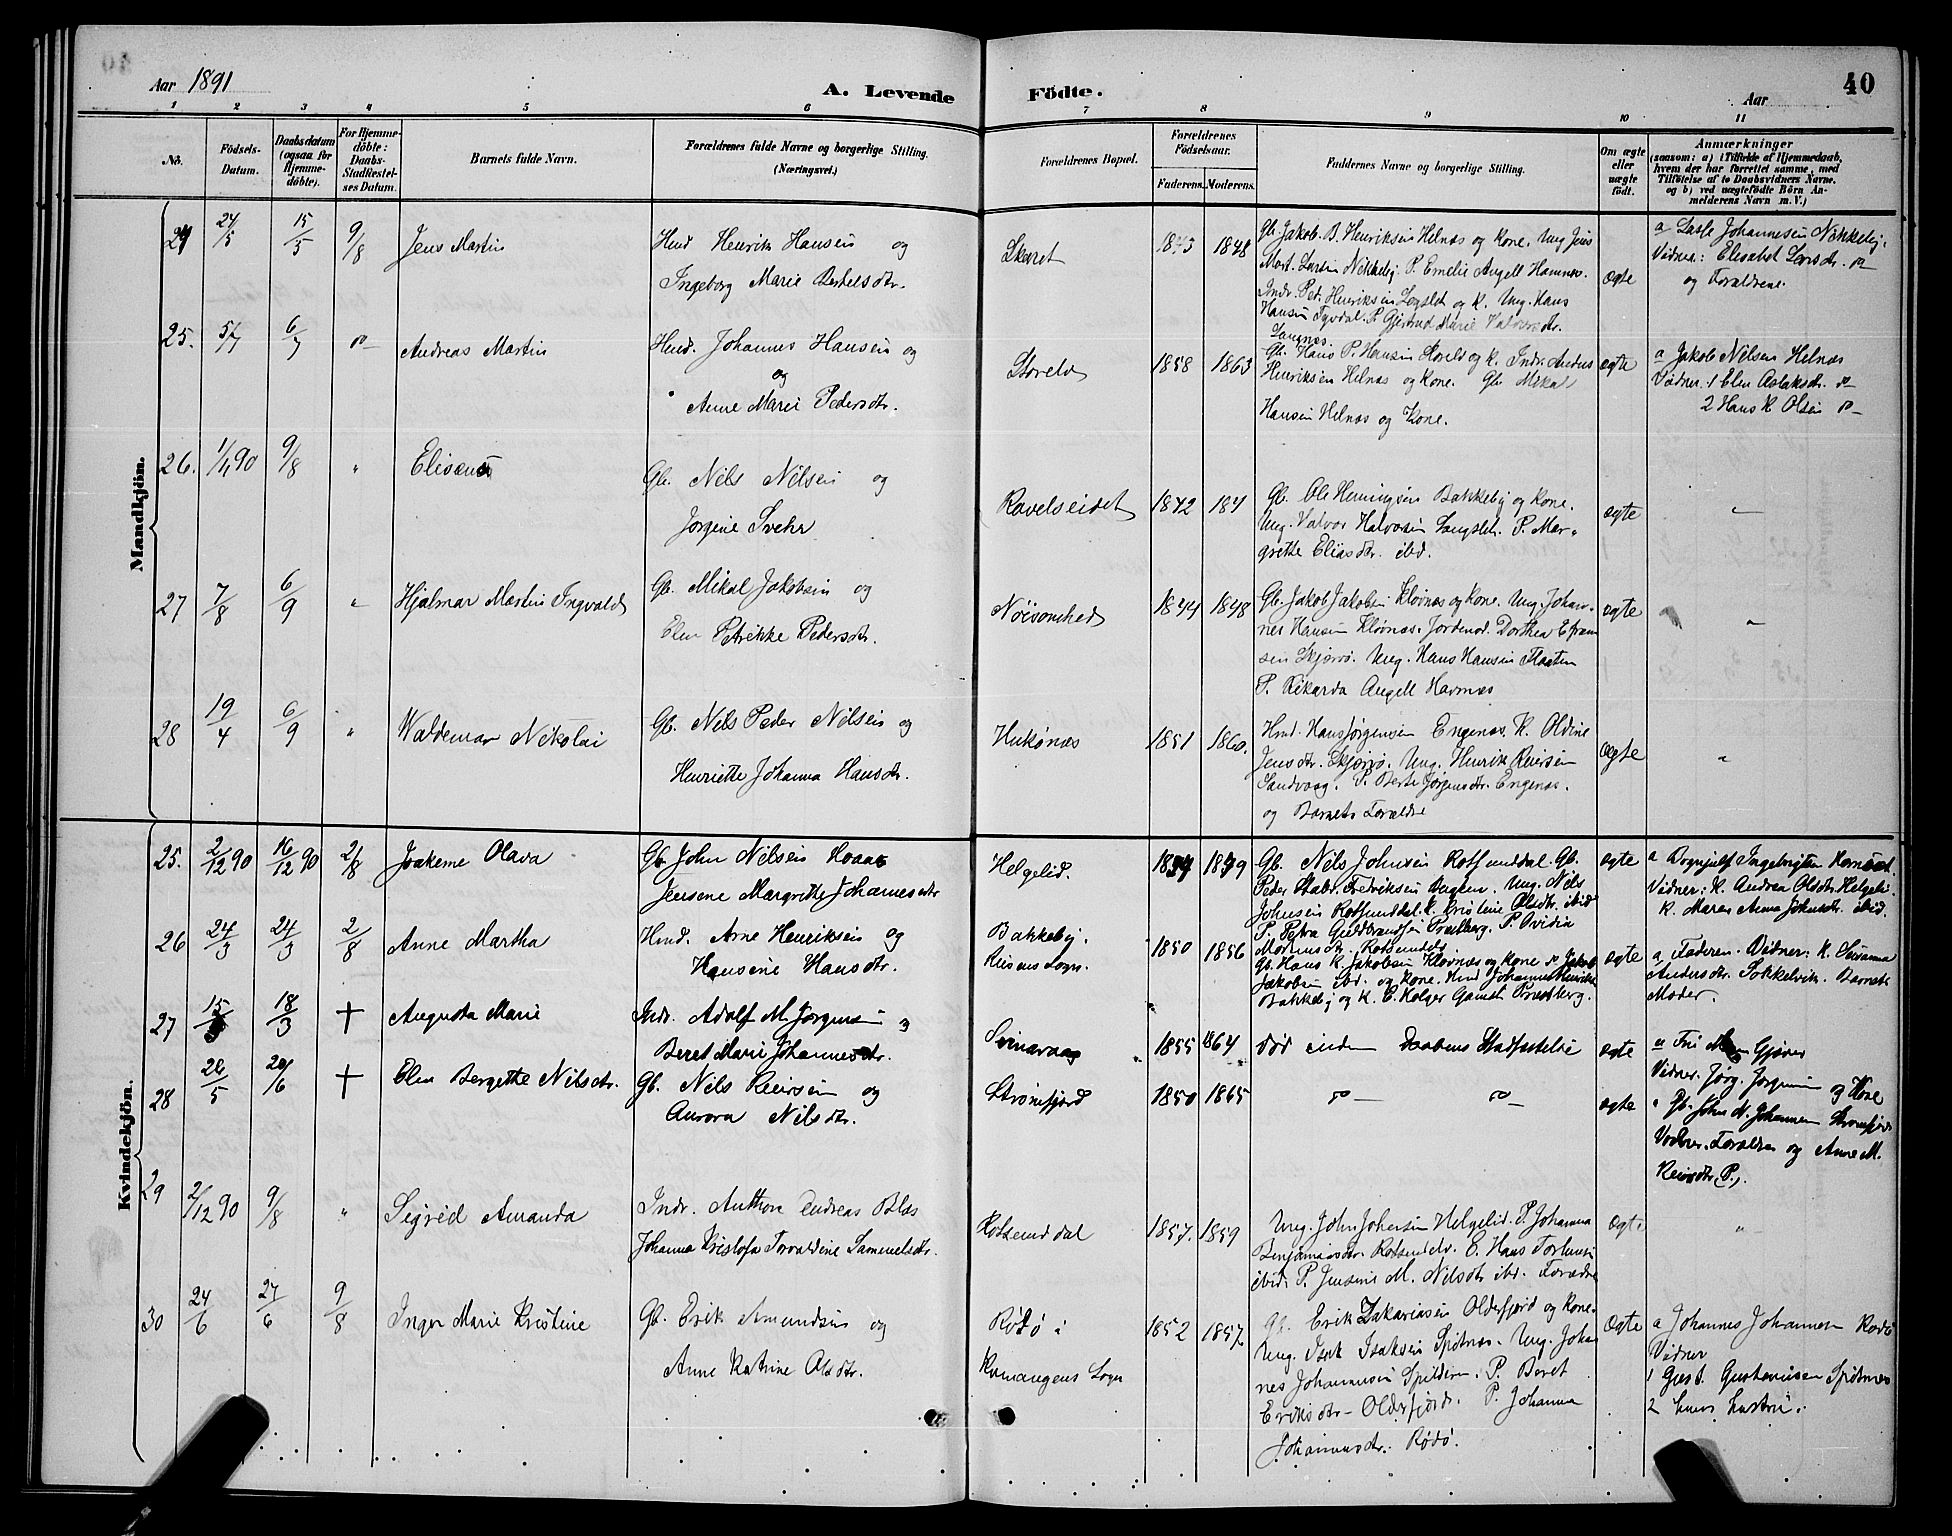 Aar 1891
A. Levende
Födte.
Aar
40
1 2 3 4 5 6 7 8 9 10 11
No.
Födsels-
Datum.
Daabsdatum
(ogsaa for
Hjemme-
döbte).
For Hjemme-
döbte:
Daabs-
Stadfæstel-
ses Datum.
Barnets fulde Navn.
Forældrenes fulde Navne og borgerlige Stilling.
(Næringsvei.)
Forældrenes Bopæl.
Forældrenes
Födselsaar.
Faderens. Moderens.
Faddernes Navne og borgerlige Stilling.
Om ægte
eller
uægte
födt.
Anmærkninger
(saasom: a) i Tilfælde af Hjemmedaab,
hvem der har forrettet samme, med
Tilföielse af to Daabsvidners Navne,
og b) ved uægtefödte Börn An-
melderens Navn m. V.)
Mandkjön.
24 24/5 15/5 9/8 Jens Martin
Hmd Henrik Hansen og
Ingeborg Marie Bertelsdtr.
Skaret
1843 1848
Gb. Jakob B. Henriksen Helnæs og Kone. Ung Jens
Mort. Larsen Nikkeby P. Emelie Angell Hamnes.
Indr. Ped. Henriksen Logslet og K. Ung. Hans
Hansen P. Gjertrud Marie
Langnæs.
ægte
a Lasse Johannesen Nikkeby.
Vidner: Elisabet Larsdtr.
og Forældrene.
25. 5/7 6/7 Andreas Martin
Hmd. Johannes Hansen og
og
Anne Marie Pedersdtr.
Storelv
1858 1863
Gb. Hans P. Hansen Storelv og K. Indr. Anders
Henriksen Helnæs og Kone. Gb. Mikal
Hansen Helnæs og Kone.
ægte
a Jakob Nilsen Helnæs
Vidner. 1 Elen Aslaksdtr.
2 Hans K Olsen
26. 1/11 90 9/8 " Eliseus
Gb. Nils Nilsen og
Jørgine Svehr
Ravelseidet
1842 184
Gb. Ole Henningsen Bakkeby og Kone.
Ung. Halvor Halvorsen Langslet. P. Mar-
grethe Eliasdtr. ibd.
ægte "
27 7/8 6/9 " Hjalmar Martin Ingvald
Gb. Mikal Jakobsen og
Elen Petrikke Pedersdtr.
Nöisomhed
1844 1848
Gb. Jakob Jakobsen Kløvnæs og Kone. Ung. Johan-
nes Hansen Kløvnæs. Jordmod. Dorthea Efraim
sen Skjervø. Ung. Hans Hansen Flaaten
P. Rikarda Angell Havnnæs
ægte "
28 19/4 6/9 " Waldemar Nikolai
Gb. Nils Peder Nilsen og
Henriette Johanna Hansdtr.
Hukønæs
1851 1860.
Hmd. Hans Jørgensen Engenæs. K. Oldine
Jensdtr. Skjervø. Ung. Henrik Reiersen
Sandvaag. P. Berte Jørgensdtr. Engenæs.
og Barnets Forældre
ægte "
Kvindekjön.
25. 2/12 90 16/12 90 2/8 Joakime Olava
Gb. John Nilsen Hoaas
Jensine Margrethe Johannesdtr
Helgelid.
1837 1849
Gb. Nils Johnsen Rotsunddal. Gb.
Peder Fredriksen Ung. Nils
Johnsen Rotsunddal. K. Kristine Olsdtr. ibid
P. Petra Guldbrandsen Præstberg. P. Ovidia
Mortensdtr. Rotsundelv
ægte
a Brynjulf Ingebrigtsen
Vidner: K. Andrea Olsdtr. Helgeli.
K. Maren Anna Johnsdtr. ibid.
26 24/3 24/3 2/8 Anne Martha
Hmd. Arne Henriksen og
Hansine Hansdtr.
Bakkeby.
Sogn.
1850 1856
Gb. Hans K. Jakobsen Kløvnæs og Kone. Jakob
Jakobsen ibd. og Kone. Hmd Johannes Henriks
Bakkeby og K. E. Holger Gamst Præstberg.
ægte
a Faderen. Vidner: K. Susanna
Andersdtr. Sokkelvik. Barnets
Moder.
27 15/3 18/3 + Augusta Marie
Indr. Adolf M. Jørgensen og
Beret Marie Johannesdtr.
Svinavaag
1855 1864
Død inden Daabens Stadfæstelse
ægte
a Fru Gjæver
Vidner. Jørg. Jørgensen og Kone
28 26/5 20/6 + Elen Bergette Nilsdtr.
Gb. Nils Reiersen og
Aurora Nilsdtr.
Strømfjord
1850 1865
ægte
" Gb. John N. Johannesen Strømfjord
Vidner. Forældre og Anne M.
Reiersdtr (P).
29 2/12 90 9/8 " Sigrid Amanda
Indr. Anthon Andreas Blas
Johanna Kristofa Torvaldine Samuelsdtr.
Rotsunddal
1857. 1859
Ung. John Johnsen Helgelid. P. Johanna
Benjaminsdtr. Rotsundelv. E. Hans
ibid. P. Jensine M. Nilsdtr ibd. Forældre
ægte "
30 24/6 27/6 9/8 Inger Marie Kristine
Gb. Erik Amundsen og
Anne Katrine Olsdtr.
Rødø i
Kvænangens Sogn
1852 1857
Gb. Erik Zakariasen Olderfjord og Kone.
Ung. Isak Isaksen Spitnæs. Ung. Johan
nes Johannesen Spilderen. P. Beret
Eriksdtr - Olderfjord. P. Johanna
Johannesdtr. Rødø.
ægte
a Johannes Johannesen Rødø
Vidner
1 Gust. Gustavsen Spitnæs
2 hans hustru.